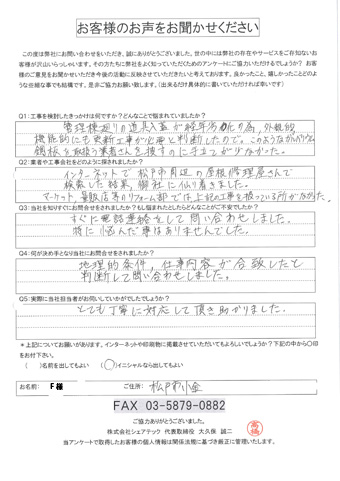 お客様のお声をお聞かせください
この度は弊社にお問い合わせをいただき、誠にありがとうございました。世の中には弊社の存在やサービスをご存知ないお
客様が沢山いらっしゃいます。その方たちに弊社をよく知っていただくためのアンケートにご協力いただけるでしょうか? お客
様のご意見をお聞かせいただき今後の活動に反映させていただきたいと考えております。良かったこと、嬉しかったことどのよ
うな些細な事でも結構です、是非ご協力お願い致します。(出来るだけ具体的に書いていただければ幸いです)
Q1:工事を検討したきっかけは何ですか?どんなことで悩まれていましたか?
管理棟廻りの道具入蓋が経年劣化の為、外観的
機能的にも更新工事が必要と判断したので。このような
鋼板を取扱う業者さんを探すのに手立てが少なかった。
Q2:業者や工事会社をどのように探されましたか?
インターネットで松戸市周辺の屋根修理屋さんで
検索した結果、御社に辿り着きました。
マーケット、量販店等のリフォーム部では上記の工事を扱っている所がなかった。
Q3:当社を知りすぐにお問合せをされましたか?もし悩まれたとしたらどんなことがご不安でしたか?
すぐに電話連絡をして問い合わせしました。
特に悩んだ事はありませんでした。
Q4:何が決め手となり当社にお問合せをされましたか?
地理的条件、仕事内容が合致したと
判断して問い合わせしました。
Q5:実際に当社担当者がお伺いしていかがでしたでしょうか?
とても丁寧に対応して頂き助かりました。
*上記についてお願いがあります。インターネットや印刷物に掲載させていただいてもよろしいでしょうか?下記の中から〇印
をお付下さい。
( )名前を出してもよい (〇)イニシャルなら出してもよい
お名前: F様 ご住所: 松戸市小金
FAX 03-5879-0882
ご協力ありがとうございました。
株式会社シェアテック 代表取締役 大久保 誠二
当アンケートで取得したお客様の個人情報は関係法態に基づき厳正に管理いたします。